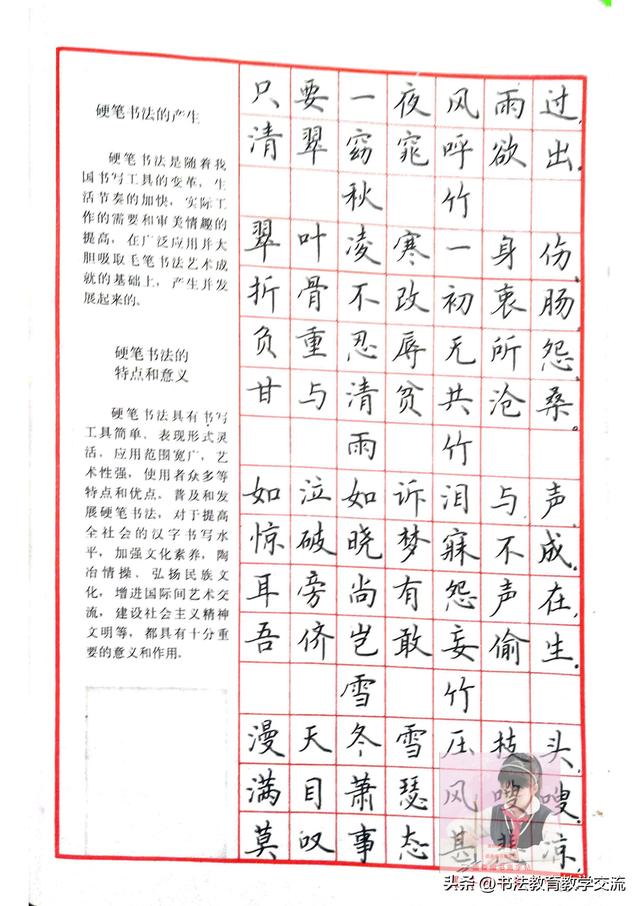 硬笔书法的产生
硬笔书法是随着我
国书写工具的变革，生
活节奏的加快，实际工
作的需要和审美情趣的
提高，在广泛应用并大
胆吸取毛笔书法艺术成
就的基础上，产生并发
展起来的。
硬笔书法的
特点和意义
硬笔书法具有书写
工具简单、表现形式灵
活，应用范围宽广，艺
术性强，使用者众多等
特点和优点。普及和发
展硬笔书法，对于提高
全社会的汉字书写水
平，加强文化素养，陶
冶情操、弘扬民族文
化，增进国际间艺术交
流，建设社会主义精神
文明等，都具有十分重
要的意义和作用。
只要一夜风雨过，
清翠窈窕呼欲出。
秋竹
翠叶凌寒一身伤，
折骨不改初衷肠。
负重忍辱无所怨，
甘与清贫共沧桑。
雨竹
如泣如诉泪与声，
惊破晓梦寐不成。
耳旁尚有怨声在，
吾侪岂敢妄偷生。
雪竹
漫天冬雪压技头，
满目萧瑟风嗖嗖。
莫叹事态甚悲凉，
头条@书法教育教学交流